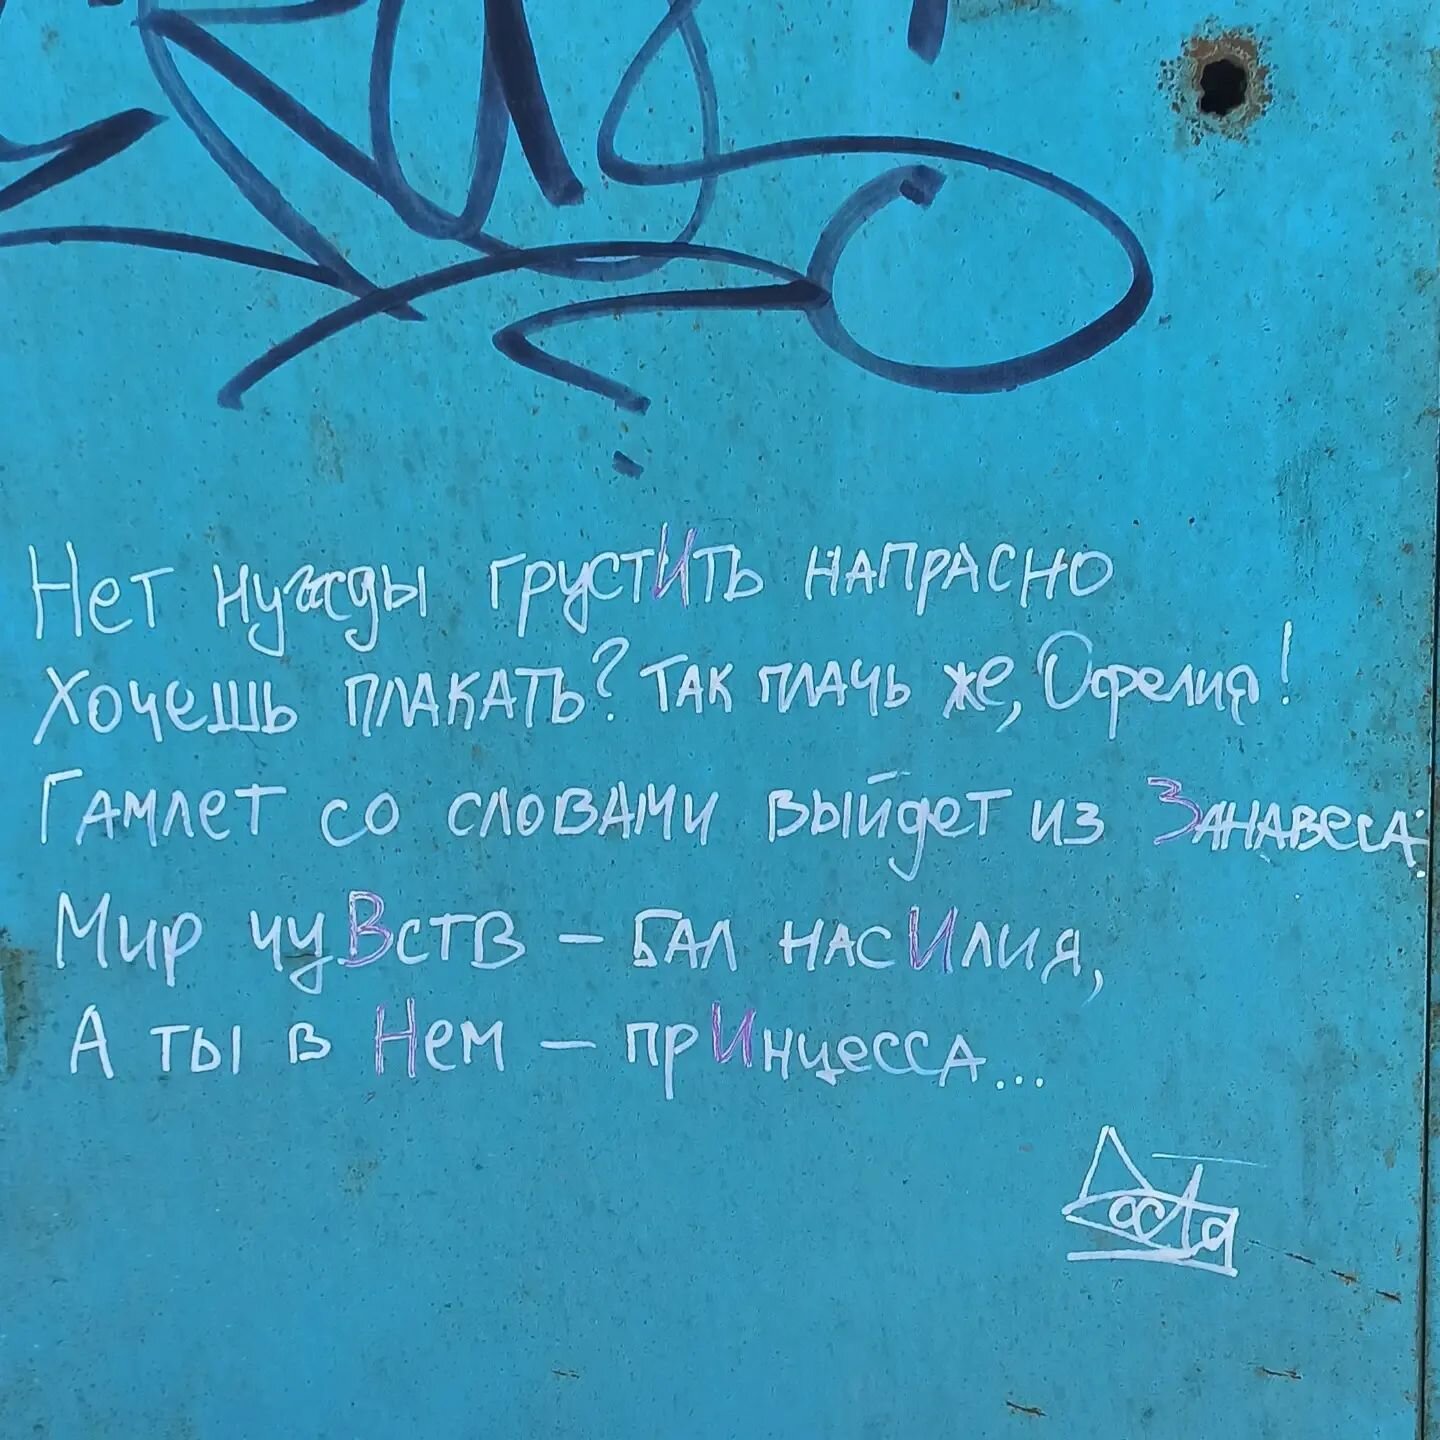 Нет нужды грустИть напрасно
Хочешь плакать? Так плачь же, Офелия!
Гамлет со словами выйдет из Занавеса:
Мир чуВств – бал насИлия,
А ты в Нем – прИнцесса...
Достя